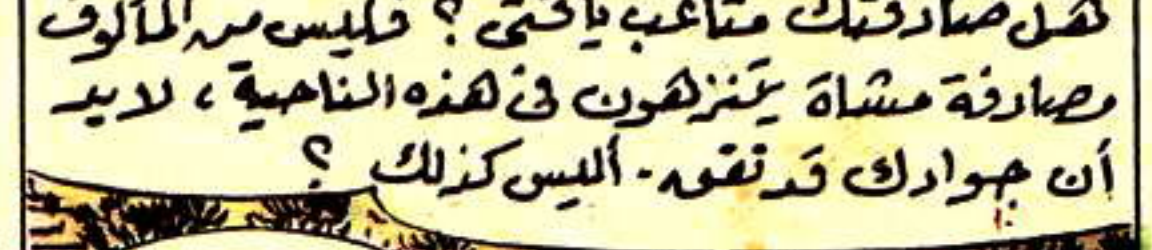 هل صادفتك متاعب يا فتى ؟ فليس من المألوف
مصادفة مشاة يتنزهون فى هذه الناحية ، لابد
أن جوادك قد نفق . أليس كذلك ؟